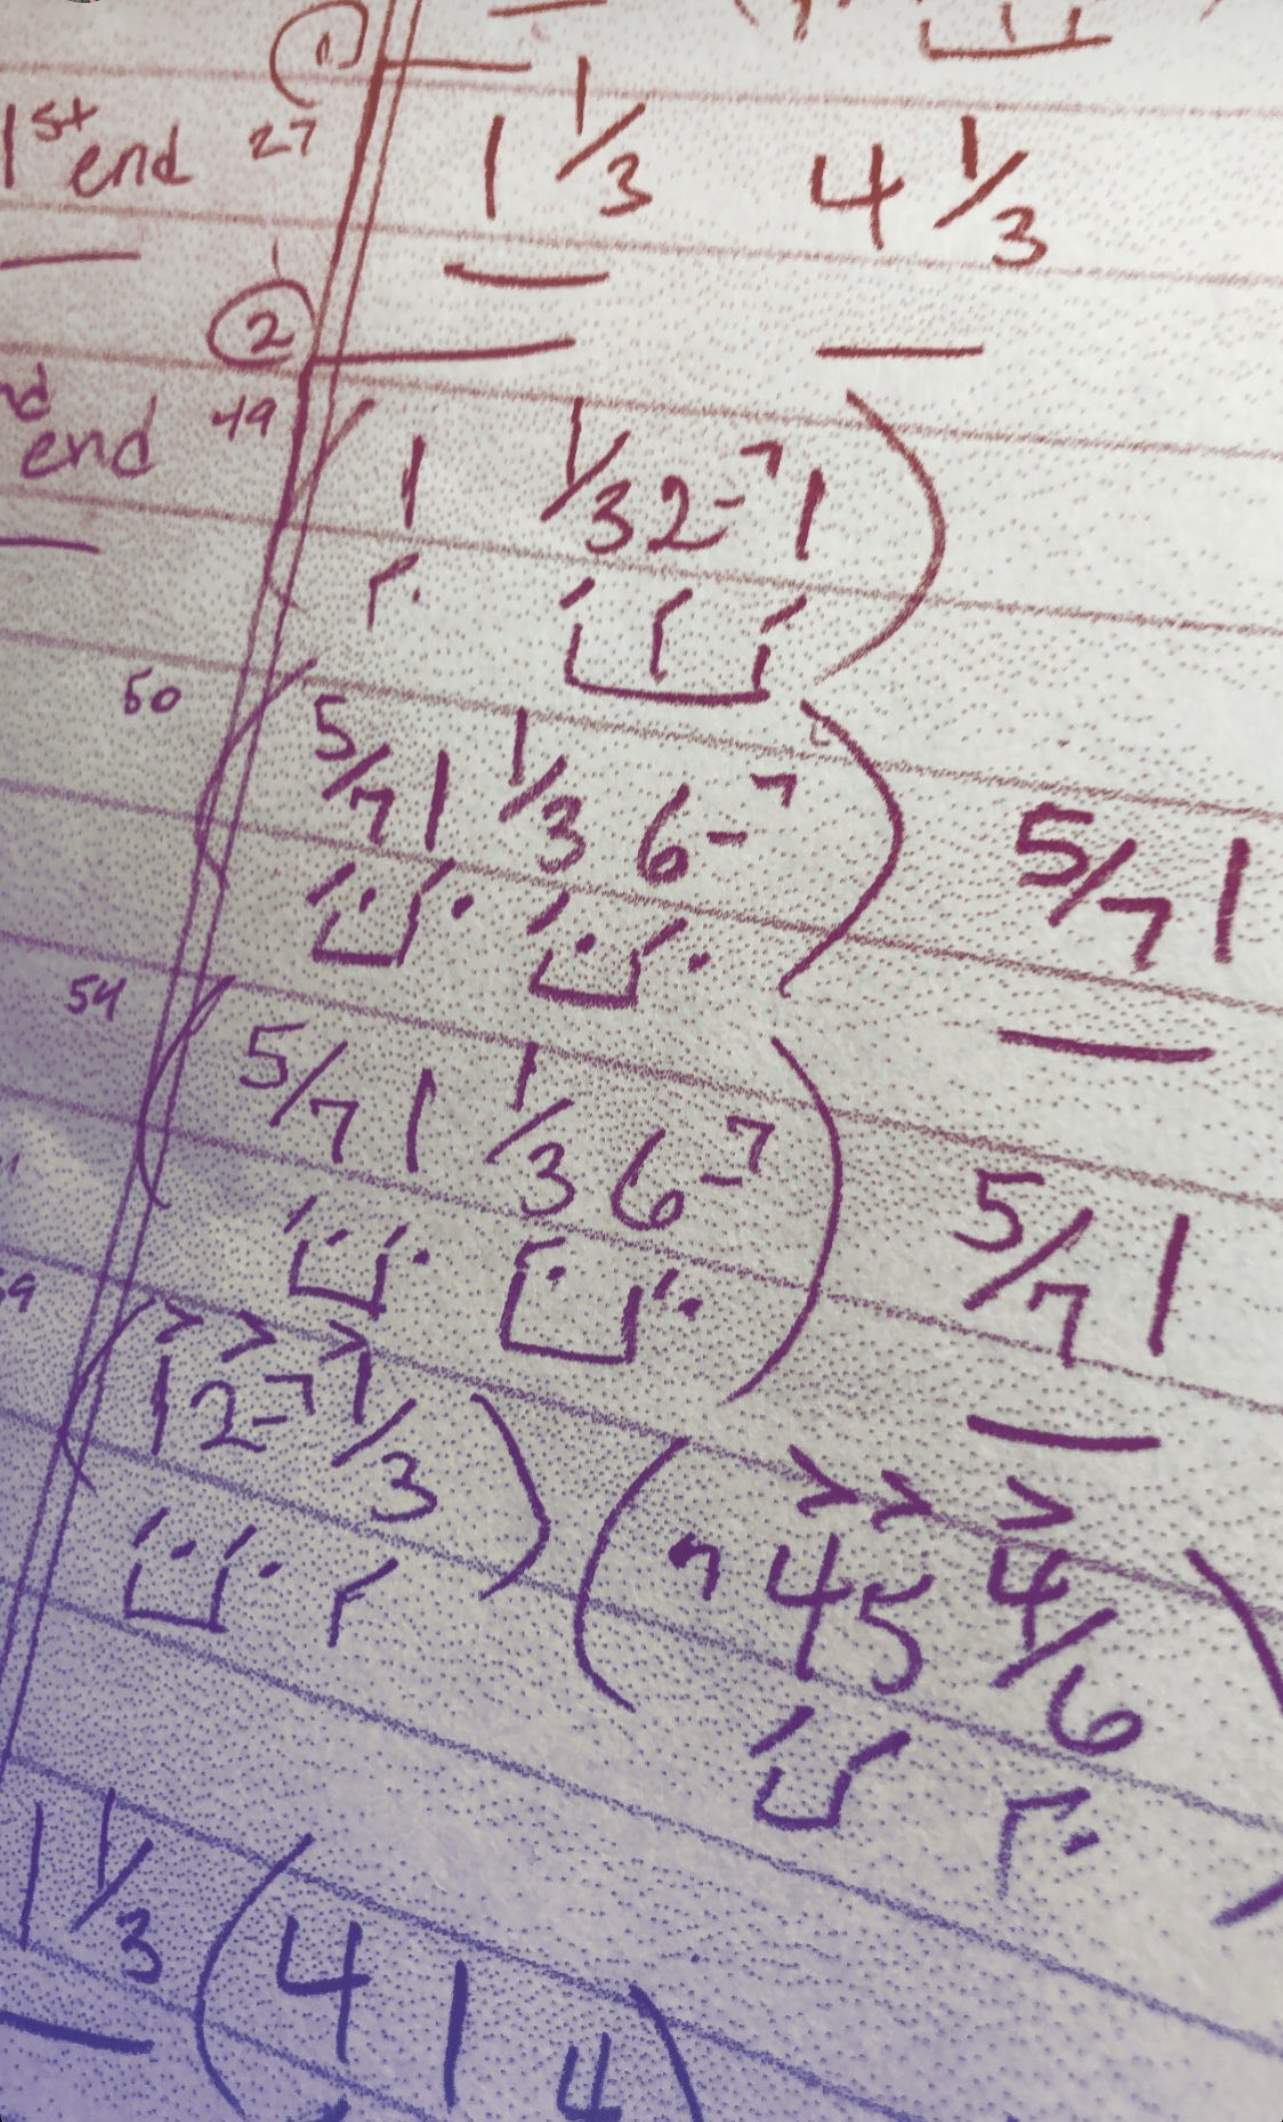 ①
1st end 27 1 1/3 4 1/3
②
nd end 49 ( 1 1/3 2-7 1 )
50 ( 5/7 1 1/3 6-7 ) 5/7 1
54 ( 5/7 1 1/3 6-7 ) 5/7 1
59 ( 1 2-7 1/3 ) ( 4 5 4/6 )
> > > > > >
1 1/3 ( 4 1 4 )